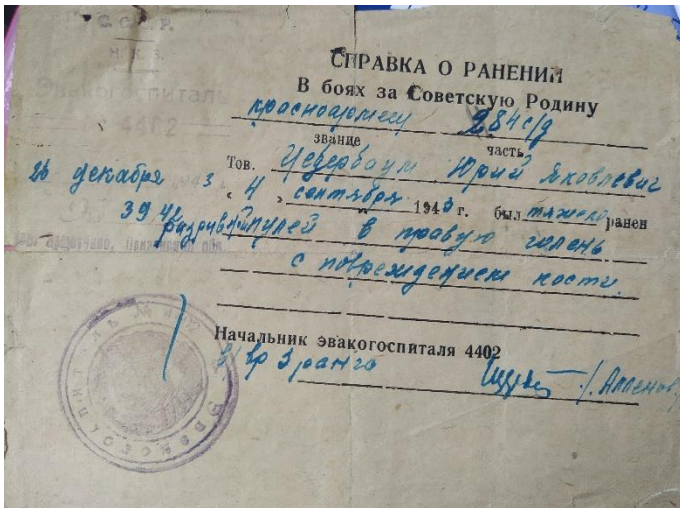 С.С.С.Р.
Н.К.З.
Эвакогоспиталь
4402
26 декабря 3
394
СПРАВКА О РАНЕНИИ
В боях за Советскую Родину
красноармеец 284 с/д
звание часть
Тов. Цедербаум Юрий Яковлевич
" 4 " сентября 1943 г. был тяжело ранен
разрывной пулей в правую голень
с повреждением кости.
Начальник эвакогоспиталя 4402
в/вр 3 ранга